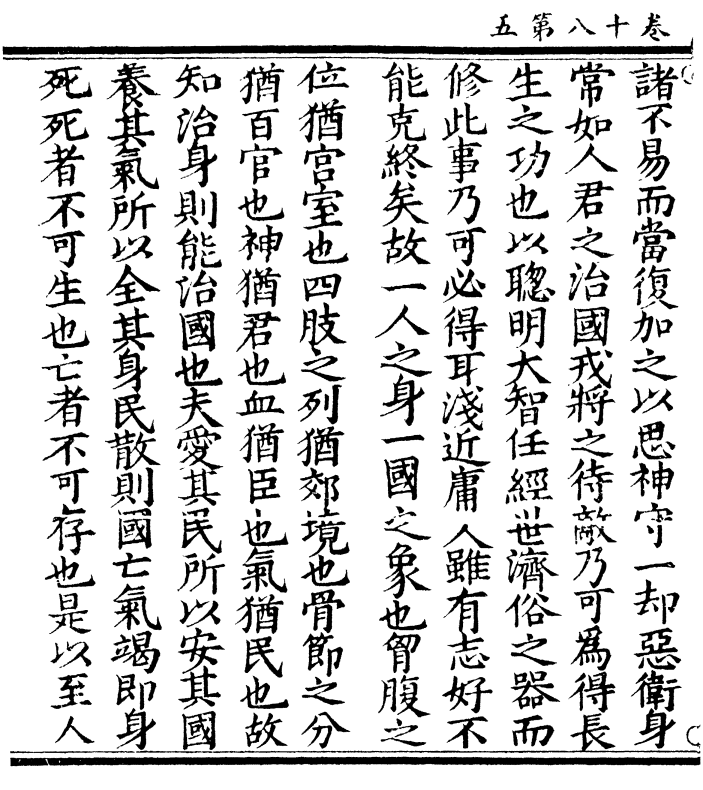 卷十八第五
諸不易而當復加之以思神守一却惡衛身
常如人君之治國戎將之待敵乃可爲得長
生之功也以聰明大智任經世濟俗之器而
修此事乃可必得耳淺近庸人雖有志好不
能克終矣故一人之身一國之象也胷腹之
位猶宫室也四肢之列猶郊境也骨節之分
猶百官也神猶君也血猶臣也氣猶民也故
知治身則能治國也夫愛其民所以安其國
養其氣所以全其身民散則國亡氣竭即身
死死者不可生也亡者不可存也是以至人